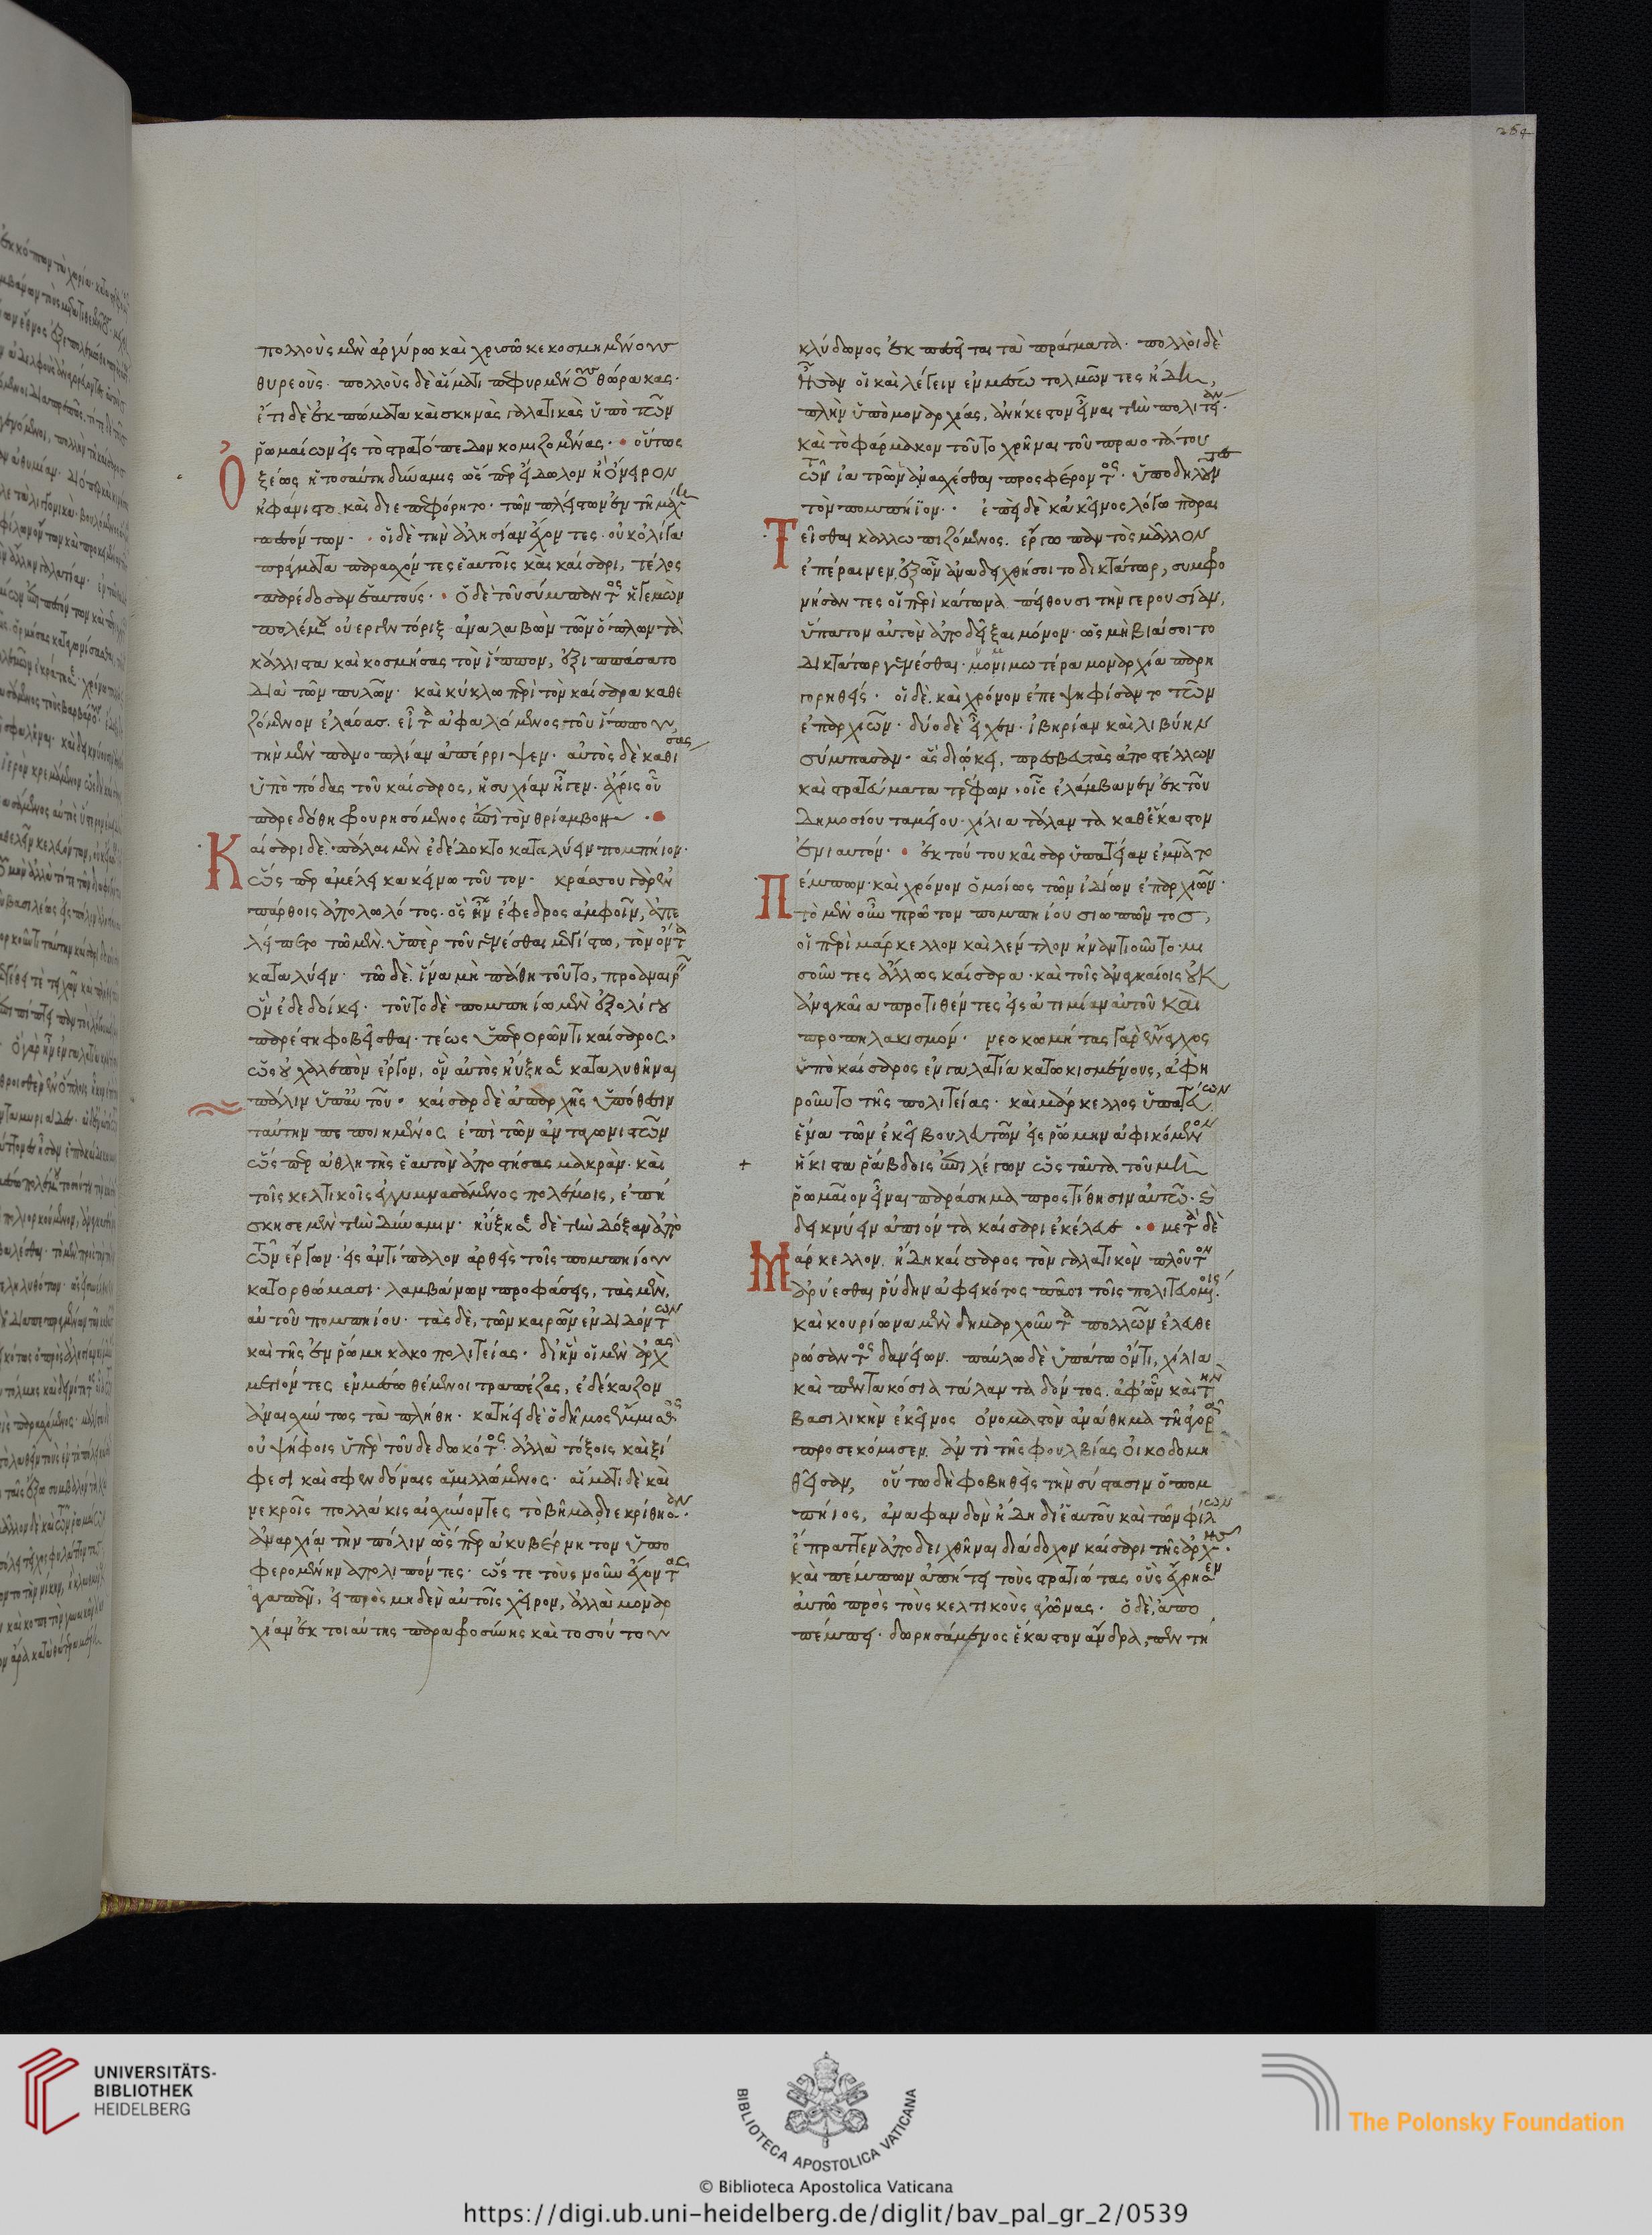 254
πολλοὺς μὲν ἀργύρω καὶ χρυσῶ κεκοσμημένους
θυρεούς· πολλοὺς δὲ αἵματι πεφυρμένους θώρακας·
ἔτι δὲ ἐκπώματα καὶ σκηνὰς γαλατικὰς ὑπὸ τῶν
ῥωμαίων εἰς τὸ στρατόπεδον κομιζομένας· οὕτως
ὀξέως ἡ τοσαύτη δύναμις ὥσπερ εἴδωλον ἢ ὄνειρον
ἠφάνιστο καὶ διεπεφόρητο· τῶν πλείστων ἐν τῆ μάχη
πεσόντων· οἱ δὲ τὴν ἀλησίαν ἔχοντες· οὐκ ὀλίγα
πράγματα παρασχόντες ἑαυτοῖς καὶ καίσαρι, τέλος
παρέδοσαν ἑαυτούς· ὁ δὲ τοῦ σύμπαντος ἡγεμὼν
πολέμου οὐεργεντόριξ ἀναλαβὼν τῶν ὅπλων τὰ
κάλλιστα καὶ κοσμήσας τὸν ἵππον, ἐξιππάσατο
διὰ τῶν πυλῶν· καὶ κύκλω περὶ τὸν καίσαρα καθε
ζόμενον ἐλάσας. εἶτα ἀφαλόμενος τοῦ ἵππου
τὴν μὲν πανοπλίαν ἀπέρριψεν· αὐτὸς δὲ καθίσας
ὑπὸ πόδας τοῦ καίσαρος, ἡσυχίαν ἦγεν· ἄχρις οὗ
παρεδόθη φρουρησόμενος ἐπὶ τὸν θρίαμβον·
Καίσαρι δὲ πάλαι μὲν ἐδέδοκτο καταλύειν πομπήιον·
ὥσπερ ἀμέλει κακείνω τοῦτον· κράσσου γὰρ ἐν
πάρθοις ἀπολωλότος· ὃς ἦν ἔφεδρος ἀμφοῖν, ἀπε
λείπετο τῶ μὲν ὑπὲρ τοῦ γενέσθαι μεγίστω, τὸν ὄντα
καταλύειν· τῶ δὲ ἵνα μὴ πάθη τοῦτο, προαναιρεῖν
ὃν ἐδεδοίκει· τοῦτο δὲ πομπηίω μὲν ἐξολίγου
παρέστη φοβεῖσθαι· τέως ὑπερορῶντι καίσαρος,
ὡς οὐ χαλεπὸν ἔργον, ὃν αὐτὸς ηὔξησε καταλυθῆναι
πάλιν ὑπ' αὐτοῦ· καίσαρ δὲ ἀπαρχῆς ὑπόθεσιν
ταύτην πεποιημένος ἐπὶ τῶν ἀνταγωνιστῶν
ὥσπερ ἀθλητὴς ἑαυτὸν ἀποστήσας μακράν· καὶ
τοῖς κελτικοῖς ἐγγυμνασάμενος πολέμοις, ἐπή
σκησε μὲν τὴν δύναμιν· ηὔξησε δὲ τὴν δόξαν ἀπὸ
τῶν ἔργων· εἰς ἀντίπαλον ἀρθεὶς τοῖς πομπηίου
κατορθώμασι· λαμβάνων προφάσεις, τὰς μὲν,
αὐτοῦ πομπηίου· τὰς δὲ, τῶν καιρῶν ἐνδιδόντων
καὶ τῆς ἐν ῥώμη κακοπολιτείας· δι' ἣν οἱ μὲν ἀρχὰς
μετιόντες ἐν μέσω θέμενοι τραπέζας, ἐδέκαζον
ἀναισχύντως τὰ πλήθη· κατήει δὲ ὁ δῆμος ἔμμισθος
οὐ ψήφοις ὑπὲρ τοῦ δεδωκότος· ἀλλὰ τόξοις καὶ ξί
φεσι καὶ σφενδόναις ἁμιλλώμενος· αἵματι δὲ καὶ
νεκροῖς πολλάκις αἰσχύνοντες τὸ βῆμα διεκρίθησαν·
ἀναρχίᾳ τὴν πόλιν ὥσπερ ἀκυβέρνητον ὑπο
φερομένην ἀπολιπόντες· ὥστε τοὺς νοῦν ἔχοντας
ἀγαπᾶν, εἰ πρὸς μηδὲν αὐτοῖς χεῖρον, ἀλλὰ μοναρ
χίαν ἐκ τοιαύτης παραφροσύνης καὶ τοσούτου
κλύδωνος ἐκπεσεῖται τὰ πράγματα· πολλοὶ δὲ
ἦσαν οἱ καὶ λέγειν ἐν μέσω τολμῶντες ἤδη,
πλὴν ὑπὸ μοναρχίας, ἀνήκεστον εἶναι τὴν πολιτείαν·
καὶ τὸ φάρμακον τοῦτο χρῆναι τοῦ πραοτάτου
τῶν ἰατρῶν ἀνασχέσθαι προσφέροντος· ὑποδηλοῦντες
τὸν πομπήϊον· ἐπεὶ δὲ κἀκεῖνος λόγω παραι
Τεῖσθαι καλλωπιζόμενος. ἔργω παντὸς μᾶλλον
ἐπέραινεν, ἐξ ὧν ἀναδειχθήσοιτο δικτάτωρ, συμφρο
νήσαντες οἱ περὶ κάτωνα πείθουσι τὴν γερουσίαν,
ὕπατον αὐτὸν ἀποδεῖξαι μόνον· ὡς μὴ βιάσοιτο
δικτάτωρ γενέσθαι· νομιμωτέρα μοναρχία παρη
γορηθείς· οἱ δὲ καὶ χρόνον ἐπεψηφίσαντο τῶν
ἐπαρχιῶν· δύο δὲ εἶχεν· ἰβηρίαν καὶ λιβύην
σύμπασαν· ἃς διῴκει, πρεσβευτὰς ἀποστέλλων
καὶ στρατεύματα τρέφων· οἷς ἐλάμβανεν ἐκ τοῦ
δημοσίου ταμείου· χίλια τάλαντα καθ' ἕκαστον
ἐνιαυτόν· ἐκ τούτου καῖσαρ ὑπατείαν ἐμνᾶτο
Πέμπων· καὶ χρόνον ὁμοίως τῶν ἰδίων ἐπαρχιῶν·
τὸ μὲν οὖν πρῶτον πομπηίου σιωπῶντος,
οἱ περὶ μάρκελλον καὶ λέντλον ἠναντιοῦντο· μι
σοῦντες ἄλλως καίσαρα· καὶ τοῖς ἀναγκαίοις οὐκ
ἀναγκαῖα προστιθέντες εἰς ἀτιμίαν αὐτοῦ καὶ
προπηλακισμόν· νεοκωμήτας γὰρ ἔναγχος
ὑπὸ καίσαρος ἐν γαλατία κατωκισμένους, ἀφῃ
ροῦντο τῆς πολιτείας· καὶ μάρκελλος ὑπατεύων
ἕνα τῶν ἐκεῖ βουλευτῶν εἰς ῥώμην ἀφικόμενον
ἤκιστα ῥάβδοις ἐπιλέγων ὡς ταῦτα τοῦ μὴ
ῥωμαῖον εἶναι παράσημα προστίθησιν αὐτῶ· καὶ
δεικνύειν ἀπιόντα καίσαρι ἐκέλευε· μετὰ δὲ
Μάρκελλον ἤδη καίσαρος τὸν γαλατικὸν πλοῦτον
ἀρύεσθαι ῥύδην ἀφεικότος πᾶσι τοῖς πολιτευομένοις·
καὶ κουρίωνα μὲν δημαρχοῦντα πολλῶν ἐλευθε
ρώσαντος δανείων. παύλω δὲ ὑπάτω ὄντι, χίλια
καὶ πεντακόσια τάλαντα δόντος. ἀφ' ὧν καὶ τὴν
βασιλικὴν ἐκεῖνος ὀνομαστὸν ἀνάθημα τῆ ἀγορᾶ
προσεκόμισεν. ἀντὶ τῆς φουλβίας οἰκοδομη
θεῖσαν, οὕτω δὴ φοβηθεὶς τὴν σύστασιν ὁ πομ
πήιος, ἀναφανδὸν ἤδη δι' ἑαυτοῦ καὶ τῶν φίλων
ἔπραττεν ἀποδειχθῆναι διάδοχον καίσαρι τῆς ἀρχῆς·
καὶ πέμπων ἀπήτει τοὺς στρατιώτας οὓς ἔχρησεν
αὐτῶ πρὸς τοὺς κελτικοὺς ἀγῶνας· ὁ δὲ, ἀπο
πέμπει· δωρησάμενος ἕκαστον ἄνδρα, πεντή
UNIVERSITÄTS-
BIBLIOTHEK
HEIDELBERG
BIBLIOTECA APOSTOLICA VATICANA
The Polonsky Foundation
© Biblioteca Apostolica Vaticana
https://digi.ub.uni-heidelberg.de/diglit/bav_pal_gr_2/0539